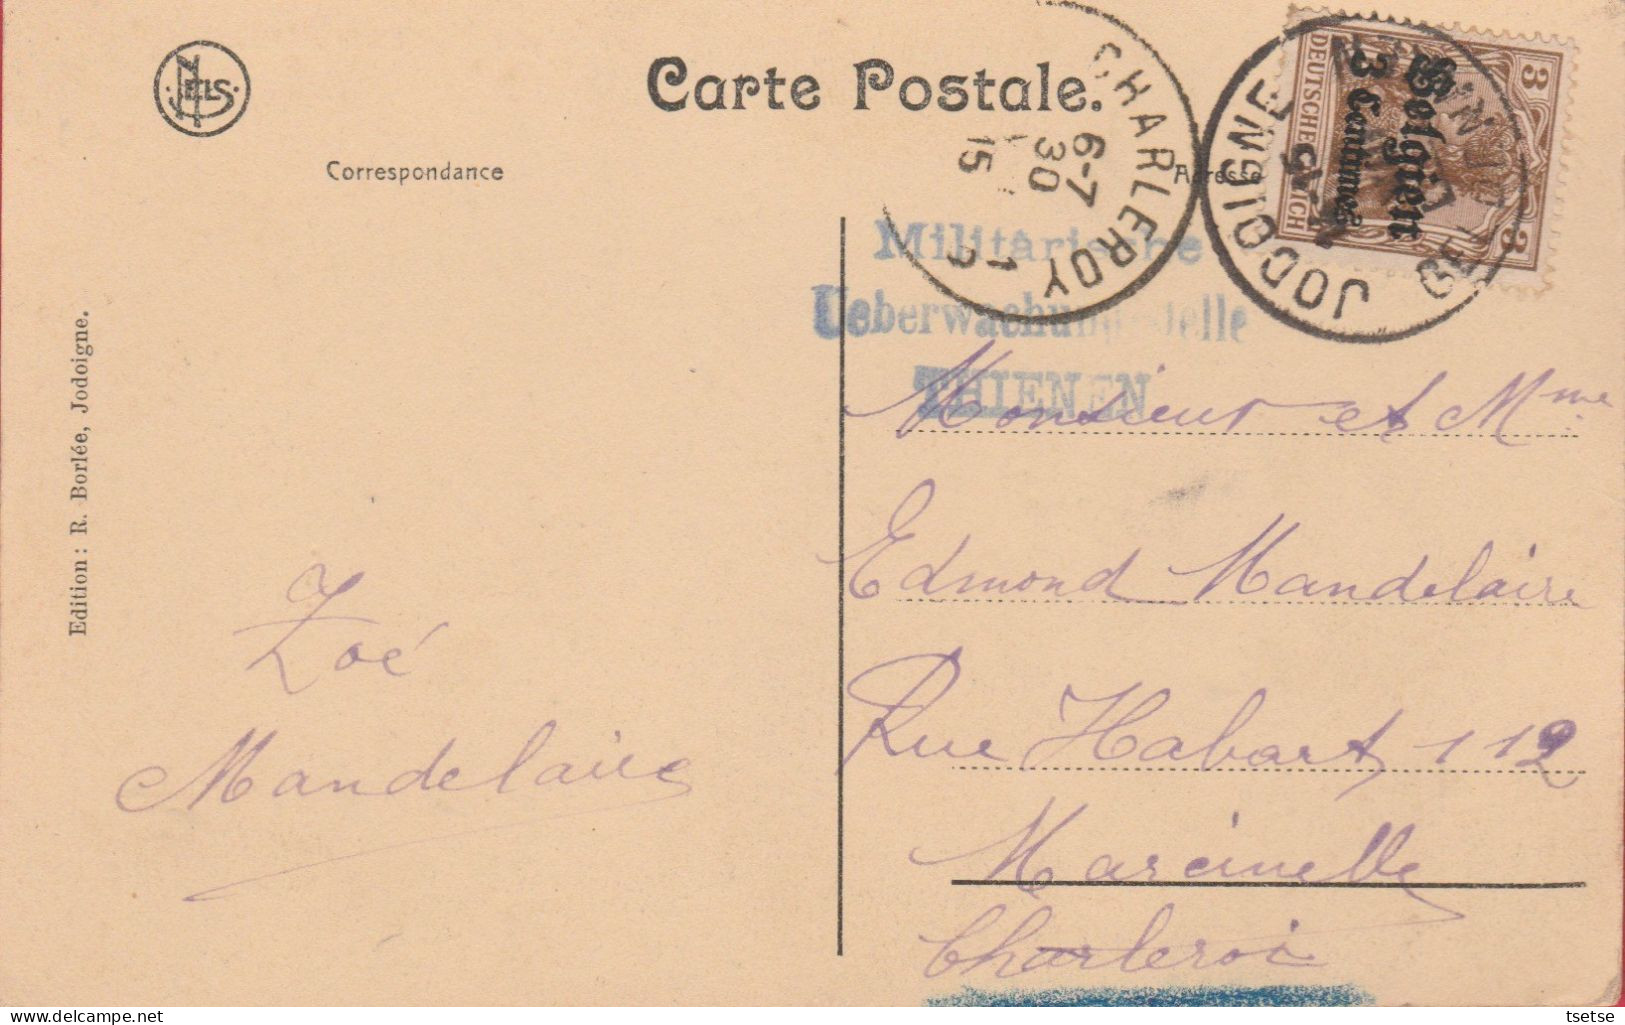 NELS
Carte Postale.
Correspondance
Adresse
CHARLEROY 1
6-7
30
15
JODOIGNE
DEUTSCHES REICH
3
3
Belgien
3 Centimes
Militärische
Ueberwachungsstelle
THIENEN
Edition : R. Borlée, Jodoigne.
Monsieur et Mme
Edmond Mandelaire
Rue Habart 112
Marcinelle
Charleroi
Zoé
Mandelaire
tsetse
delcampe.net